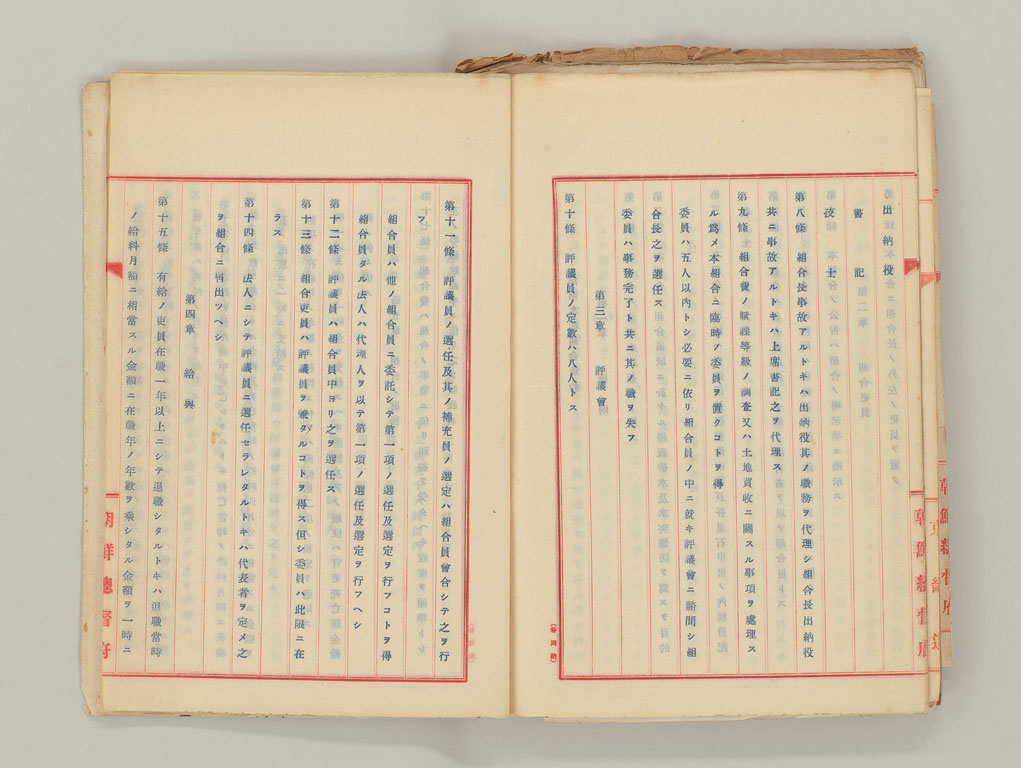 出納役
書記　技士
第八條　組合長事故アルトキハ出納役其ノ職務ヲ代理シ組合長出納役
共ニ事故アルトキハ上席書記之ヲ代理ス
第九條　組合費ノ賦課等級ノ調査又ハ土地買收ニ關スル事項ヲ處理ス
ル爲メ本組合ニ臨時ノ委員ヲ置クコトヲ得
委員ハ五人以內トシ必要ニ依リ組合員ノ中ニ就キ評議會ニ諮問シ組
合長之ヲ選任ス
委員ハ事務完了ト共ニ其ノ職ヲ失フ
第三章　評議會
第十條　評議員ノ定數ハ八人トス
第十一條　評議員ノ選任及其ノ補充員ノ選定ハ組合員會合シテ之ヲ行
フ
組合員ハ他ノ組合員ニ委託シテ第一項ノ選任及選定ヲ行フコトヲ得
組合員タル法人ハ代理人ヲ以テ第一項ノ選任及選定ヲ行フヘシ
第十二條　評議員ハ組合員中ヨリ之ヲ選任ス
第十三條　組合吏員ハ評議員ヲ兼ヌルコトヲ得ス但シ委員ハ此限ニ在
ラス
第十四條　法人ニシテ評議員ニ選任セラレタルトキハ代表者ヲ定メ之
ヲ組合ニ屆出ツヘシ
第四章　給與
第十五條　有給ノ吏員在職一年以上ニシテ退職シタルトキハ退職當時
ノ給料月額ニ相當スル金額ニ在職年ノ年數ヲ乘シタル金額ヲ一時ニ
朝鮮總督府
朝鮮總督府